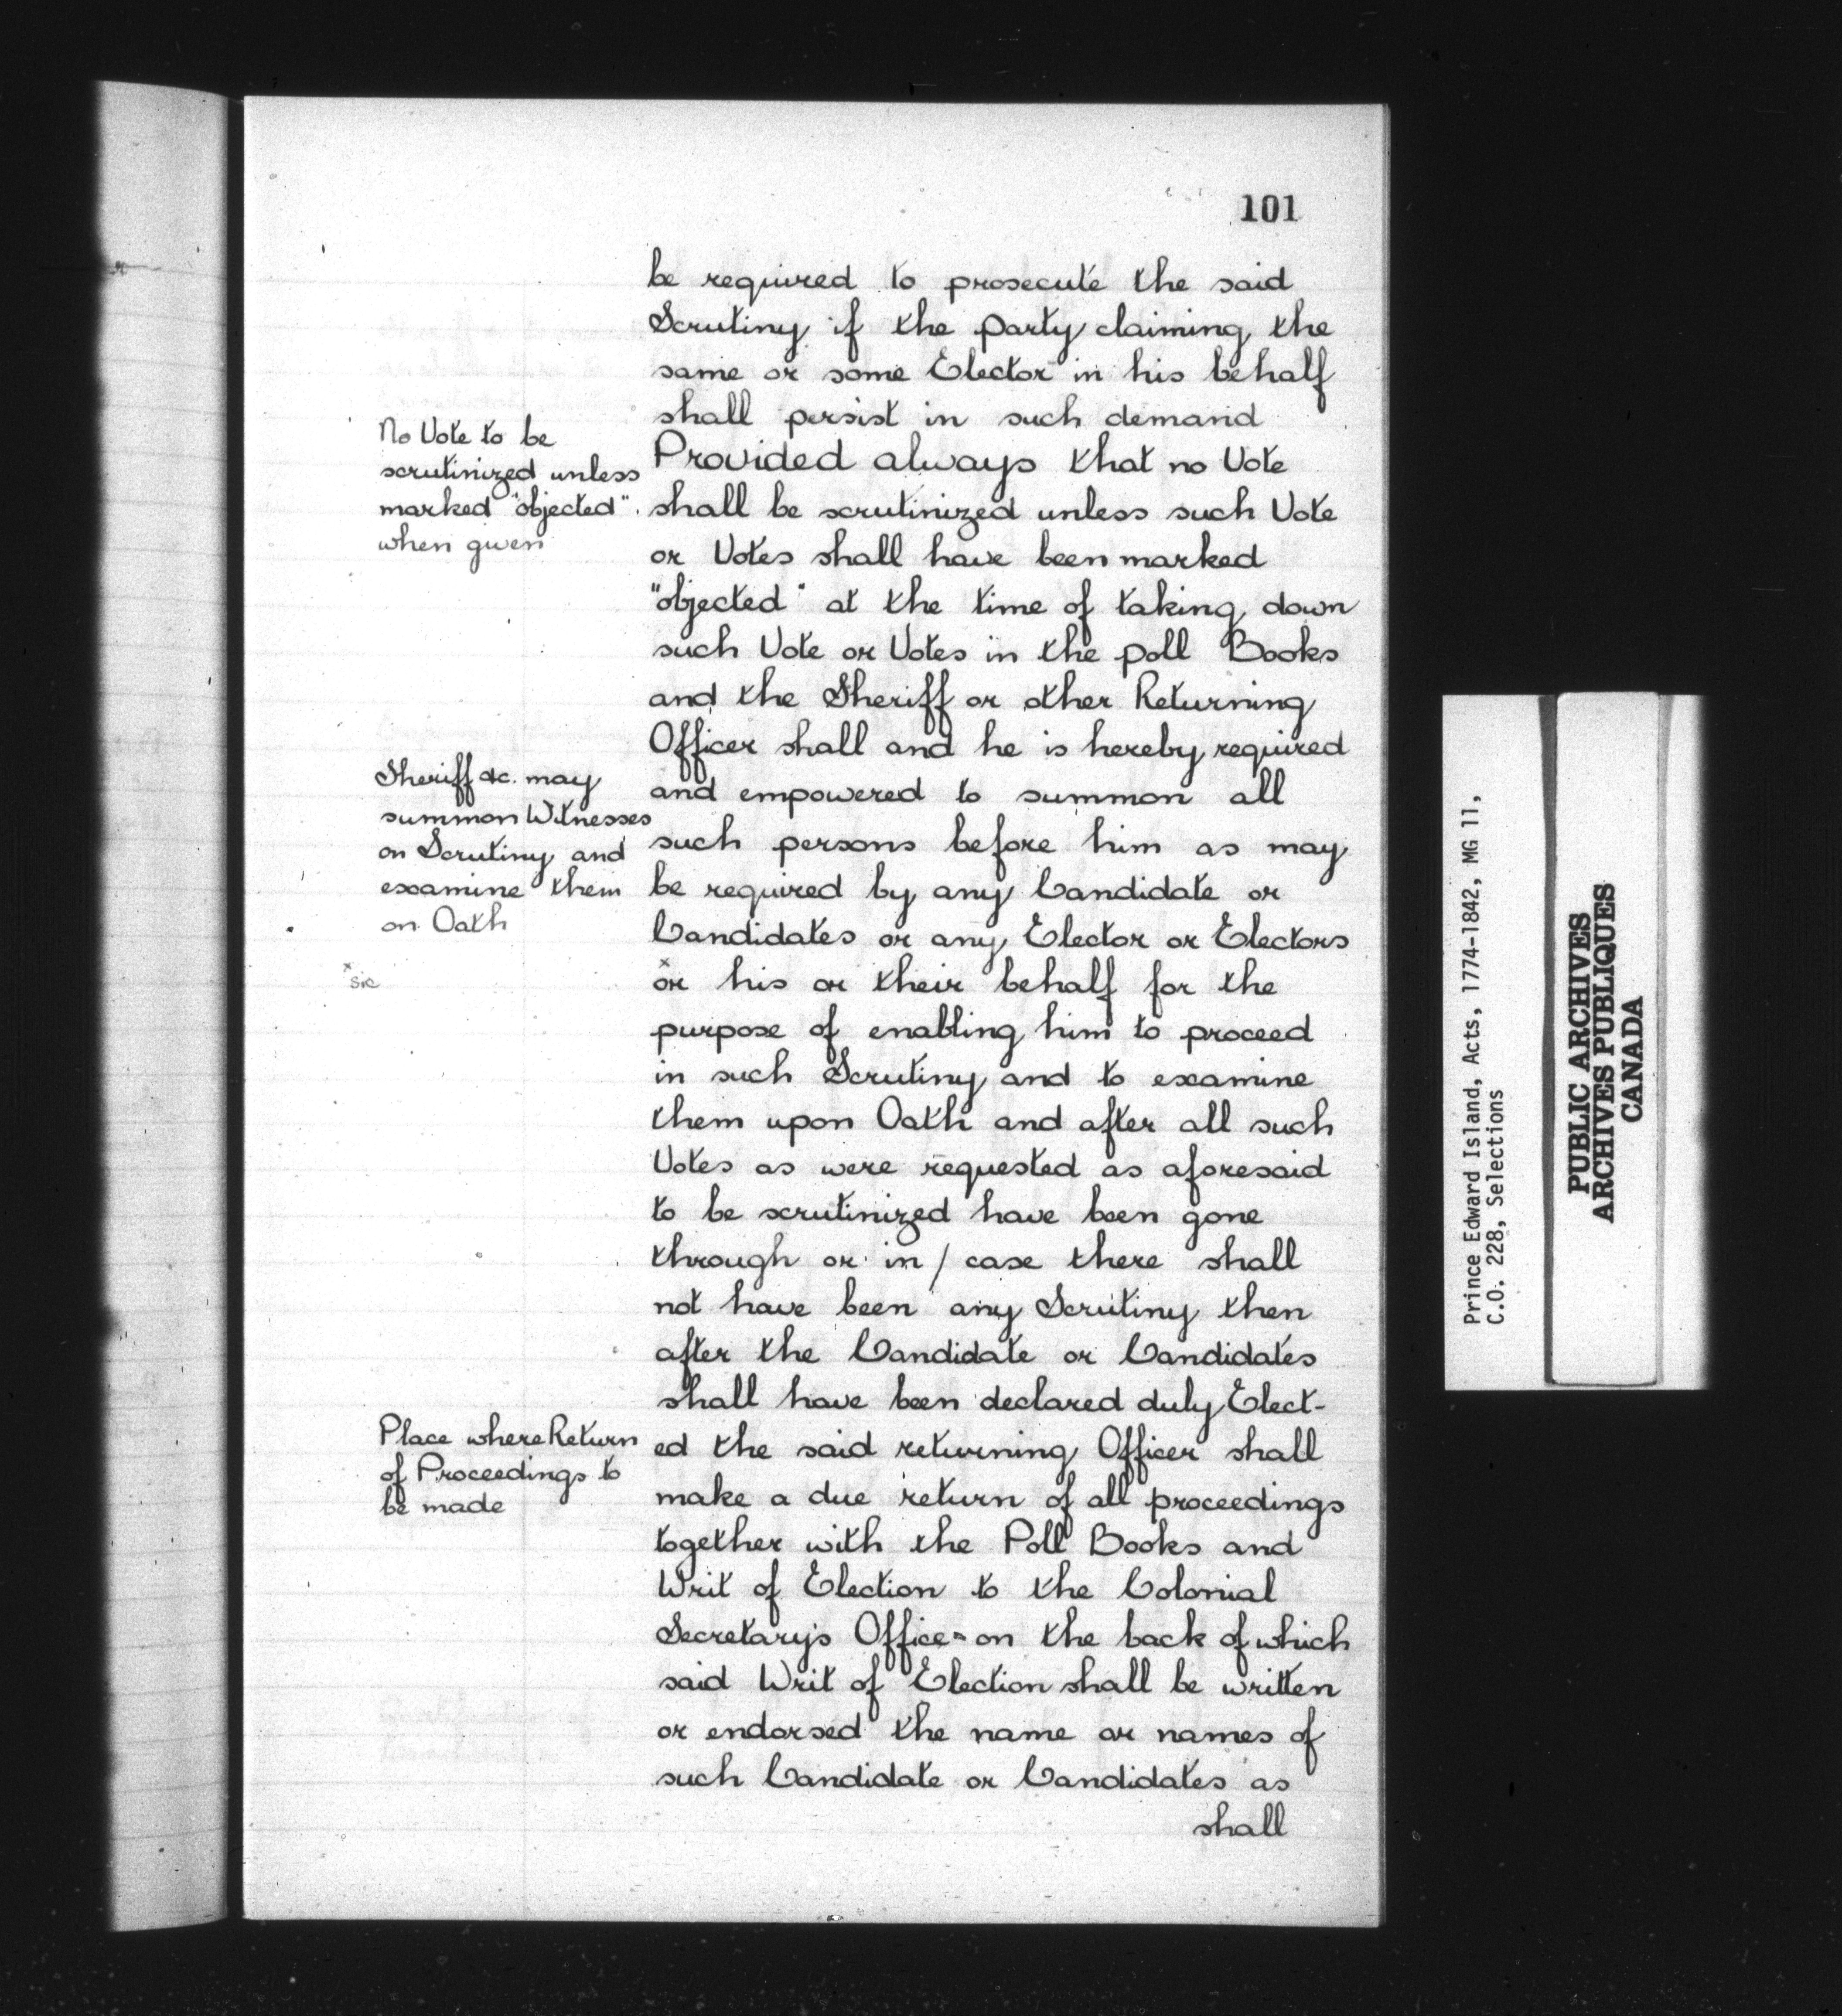 101
be required to prosecute the said
Scrutiny if the party claiming the
same or some Elector in his behalf
shall persist in such demand
No Vote to be
scrutinized unless
marked "objected"
when given
Provided always that no Vote
shall be scrutinized unless such Vote
or Votes shall have been marked
"objected" at the time of taking down
such Vote or Votes in the poll Books
and the Sheriff or other Returning
Officer shall and he is hereby required
Sheriff &c. may
summon Witnesses
on Scrutiny and
examine them
on Oath
and empowered to summon all
such persons before him as may
be required by any Candidate or
Candidates or any Elector or Electors
x
sic
x
or his or their behalf for the
purpose of enabling him to proceed
in such Scrutiny and to examine
them upon Oath and after all such
Votes as were requested as aforesaid
to be scrutinized have been gone
through or in / case there shall
not have been any Scrutiny then
after the Candidate or Candidates
shall have been declared duly Elect-
Place where Return
of Proceedings to
be made
ed the said returning Officer shall
make a due return of all proceedings
together with the Poll Books and
Writ of Election to the Colonial
Secretary's Office - on the back of which
said Writ of Election shall be written
or endorsed the name or names of
such Candidate or Candidates as
shall
Prince Edward Island, Acts, 1774-1842, MG 11,
C.O. 228, Selections
PUBLIC ARCHIVES
ARCHIVES PUBLIQUES
CANADA